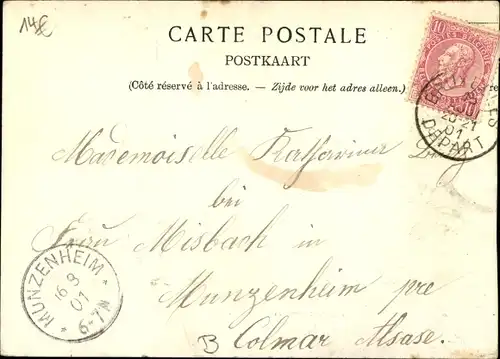 14€
CARTE POSTALE
POSTKAART
(Côté réservé à l'adresse. — Zijde voor het adres alleen.)
10
DEPART
Mademoiselle
bei
Frau Misbach in
Munzenheim pre
B Colmar Alsase.
MUNZENHEIM
16 9
01
6-7N